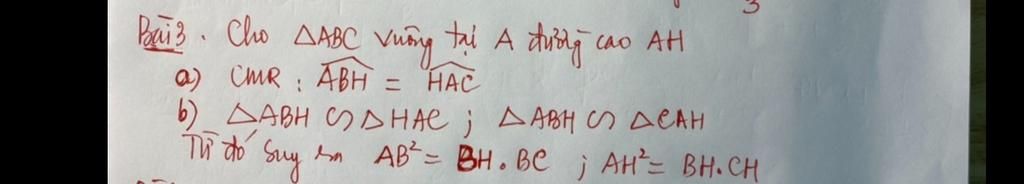 Bài 3. Cho △ABC vuông tại A đường cao AH
a) CMR : \widehat{ABH} = \widehat{HAC}
b) △ABH ∽ △HAC ; △ABH ∽ △CAH
Từ đó suy ra AB² = BH.BC ; AH² = BH.CH